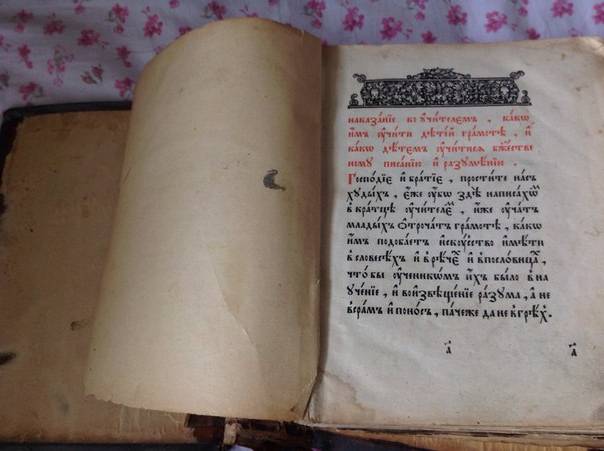 наказа́нїе ко ᲂу҆чи́телемъ , ка́кѡ
и҆́мъ ᲂу҆чи́ти дѣте́й гра́мотѣ , и҆
ка́кѡ дѣ́темъ ᲂу҆чи́тисѧ бж҃е́стве
ному писа́нїю и҆ разꙋмѣ́нїю .
Господїе и҆ бра́тїе , прости́те на́съ
хꙋды́хъ , є҆́же ᲂу҆́бѡ здѣ̀ написахѡⷨ
в кра́тцѣ ᲂу҆чи́телеⷨ , и҆́же ᲂу҆ча́тъ
млады́хъ ѻ҆троча́тъ гра́мотѣ , ка́кѡ
и҆́мъ подоба́етъ и҆скꙋ́сство и҆мѣ́ти
в словесѣ́хъ и҆ в рѣ́чеⷯ и҆ в посло́вицаⷯ ,
что́ бы ᲂу҆ченикѡ́мъ и҆́хъ бы́ло в на
ᲂуче́нїе , и҆ во и҆звѣще́нїе ра́зꙋма , а҆ не
в сра́мъ и҆ поно́съ , па́че же да не в грѣ́хъ .
а҃ а҃